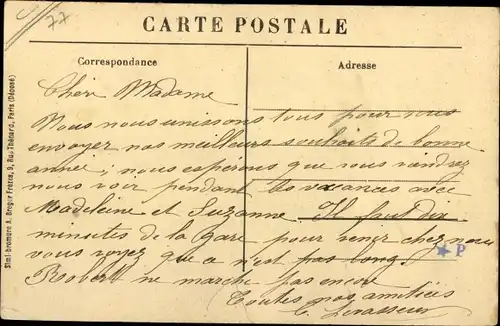 77
CARTE POSTALE
Correspondance
Adresse
Chère Madame
Nous nous unissons tous pour vous
envoyer nos meilleurs souhaits de bonne
année; nous espérons que vous viendrez
nous voir pendant les vacances avec
Madeleine et Suzanne. Il faut dix
minutes de la gare pour venir chez nous
vous voyez que ça n'est pas long.
Robert ne marche pas encore
Toutes nos amitiés
C. Levasseur
★ P
Simi-bromure A. Breger Frères, 9, Rue Thénard, Paris (Déposé)